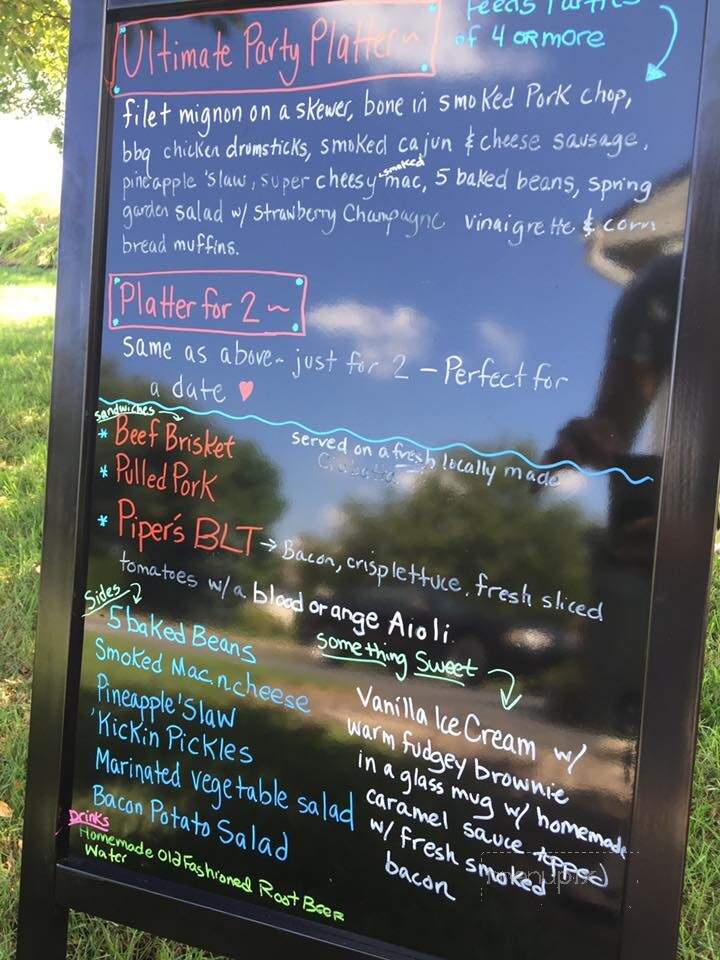 Feeds Parties
of 4 or more
Ultimate Party Platter~
filet mignon on a skewer, bone in smoked Pork chop,
bbq chicken drumsticks, smoked cajun & cheese sausage,
pineapple 'slaw, super cheesy smoked mac, 5 baked beans, spring
garden salad w/ strawberry Champagne vinaigrette & corn
bread muffins.
Platter for 2 ~
same as above~ just for 2 - Perfect for
a date ♥
Sandwiches →
* Beef Brisket
served on a fresh locally made
Ciabatta
* Pulled Pork
* Piper's BLT → Bacon, crisp lettuce, fresh sliced
tomatoes w/a blood orange Aioli.
Sides →
5 baked Beans
Smoked Mac n cheese
Pineapple 'Slaw
'Kickin Pickles
Marinated vegetable salad
Bacon Potato Salad
Something Sweet
Vanilla Ice Cream w/
warm fudgey brownie
in a glass mug w/ homemade
caramel sauce topped
w/ fresh smoked
bacon
Drinks
Homemade Old Fashioned Root Beer
Water
menupix